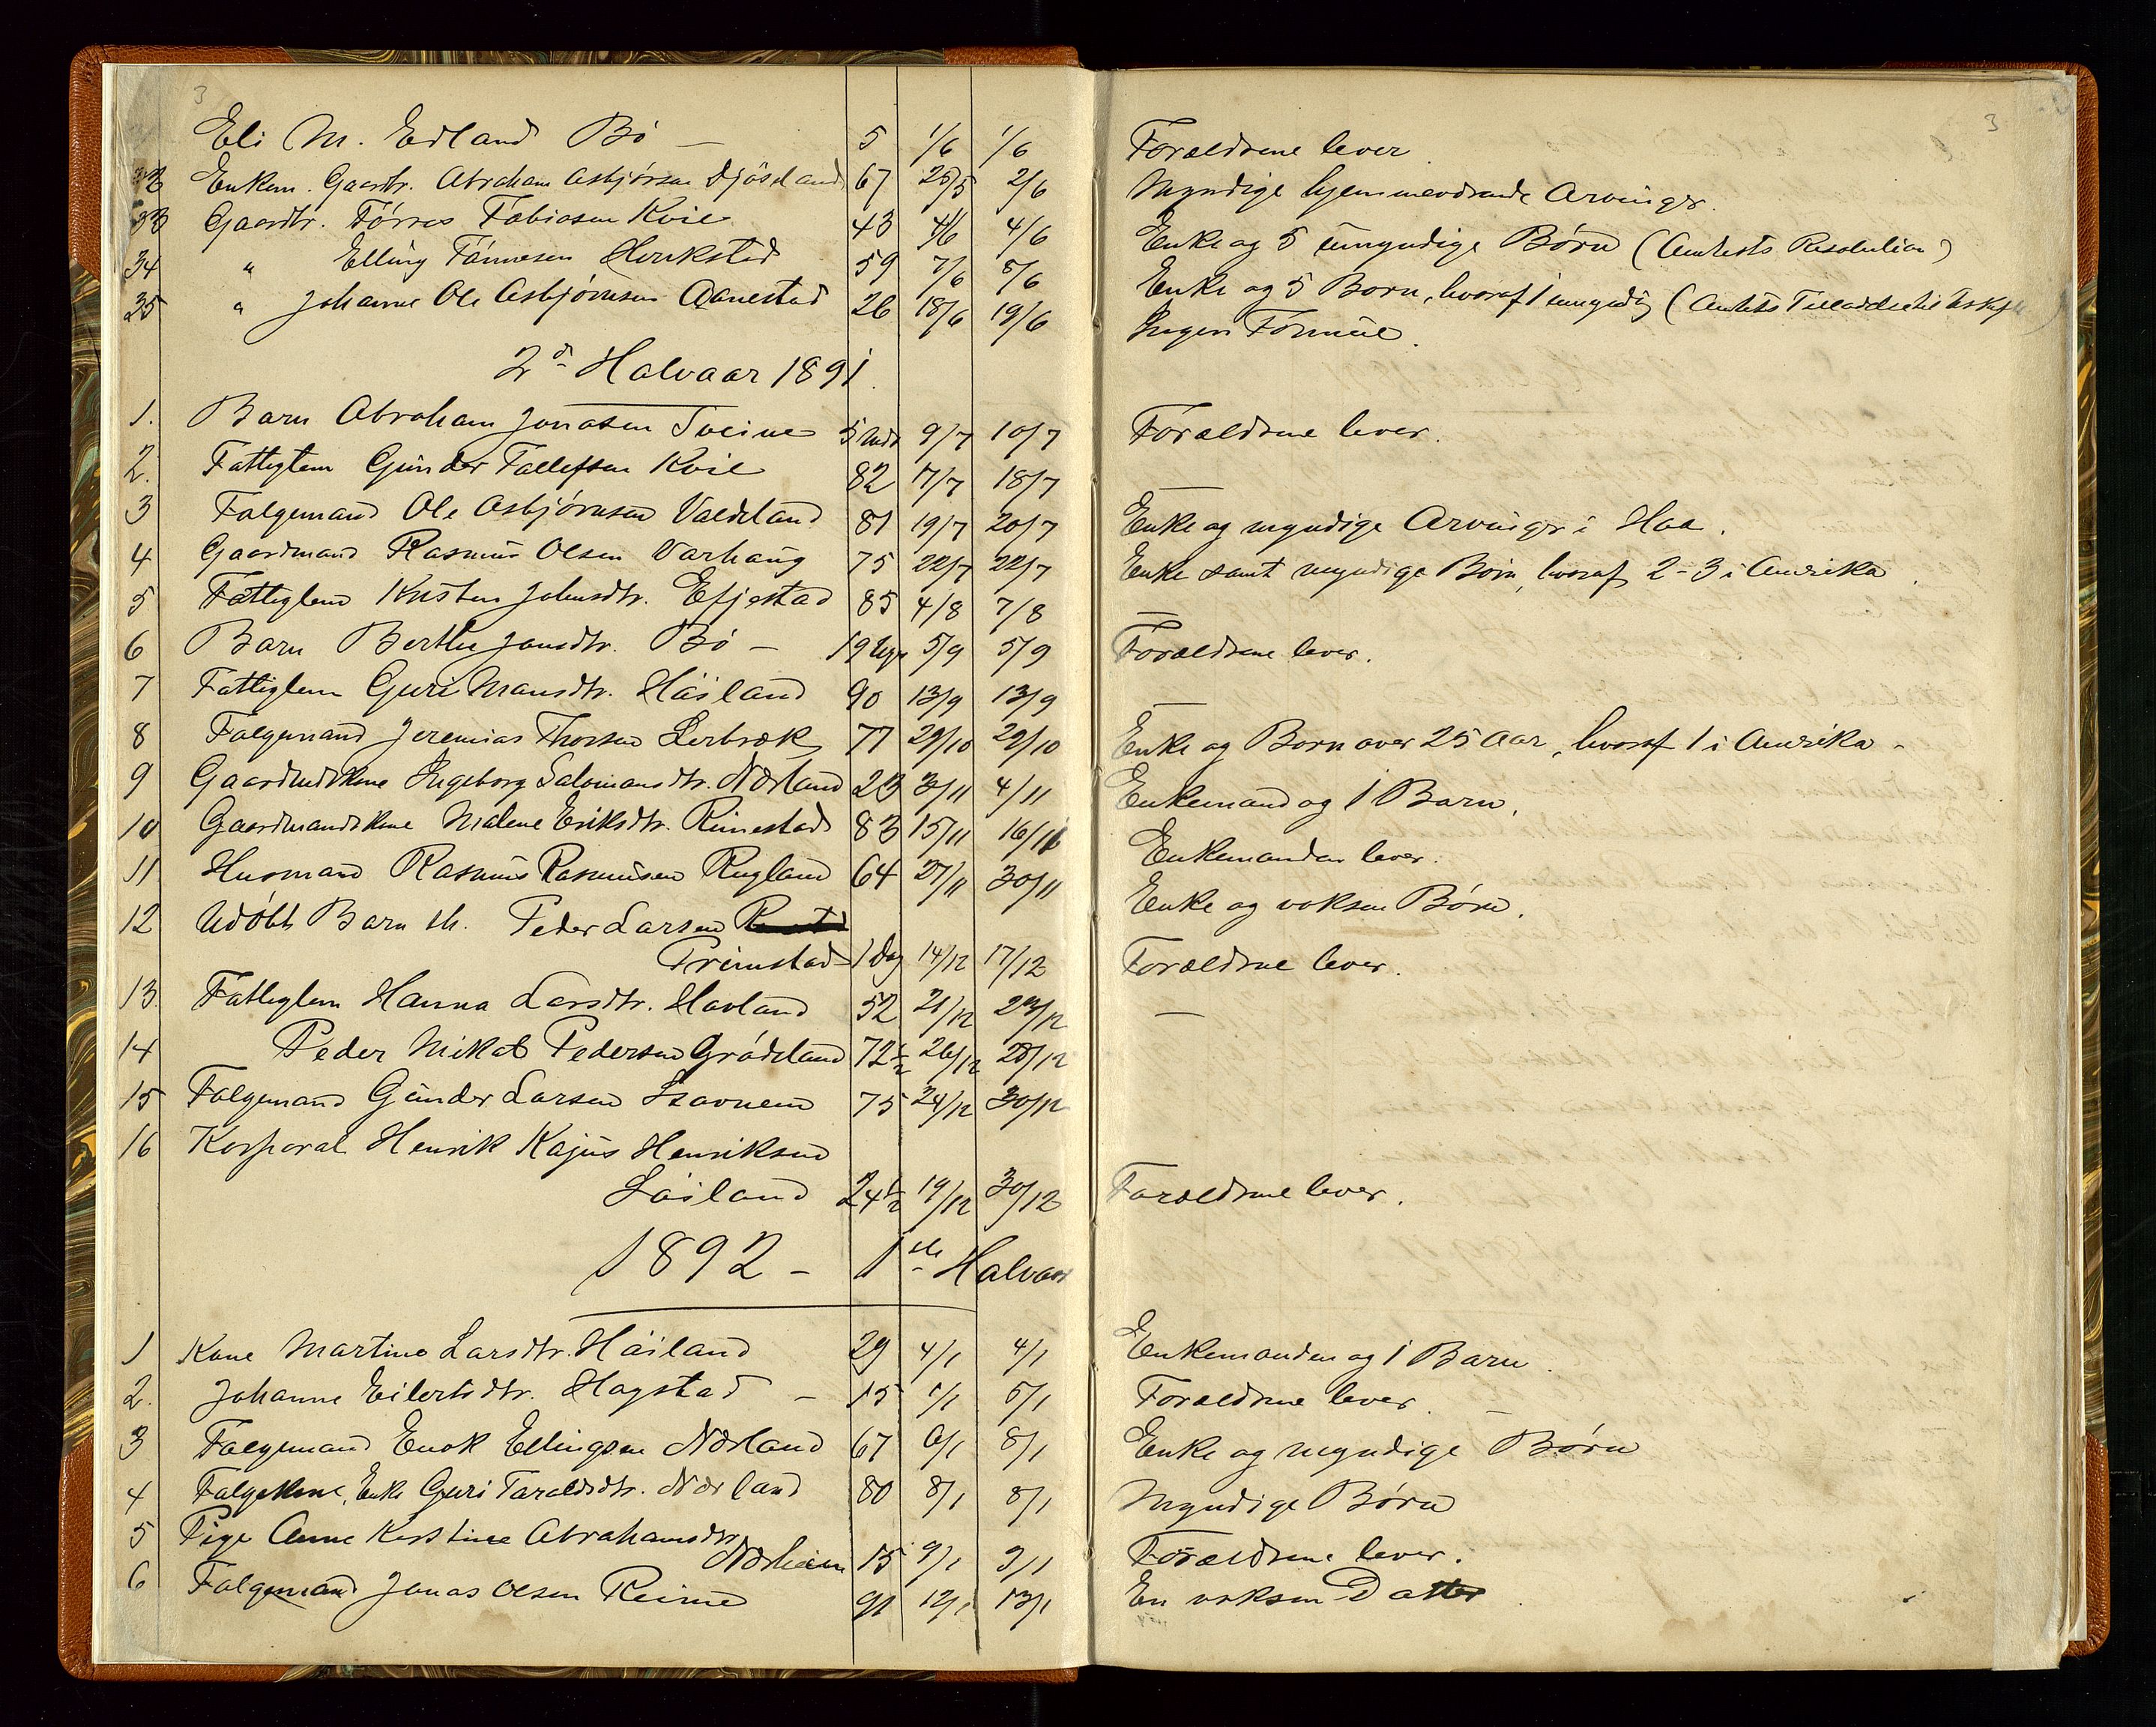 3
Eli M. Edland Bö — 5 1/6 1/6 Forældrene lever.
Enkem. Gaardbr. Abraham Asbjørsen 67 25/5 2/6 Myndige hjemmeværende Arvinger.
33 Gaardbr. Tørres Tobiasen Kvie 43 4/6 4/6 Enke og 5 umyndige Børn (Amtets Resolution)
34 " Elling Tønnesen Høikstad 59 7/6 8/6 Enke og 5 Børn, hvoraf 1 umyndig (Amtets
35 " Johanne Ole Asbjørnsen Aanestad 26 18/6 19/6 Ingen Formue.
2d Halvaar 1891.
1. Barn Abraham Jonasen 5 Mdr 9/7 10/7 Forældrene lever.
2. Fattiglem Gunder Tollefsen Kvie 82 17/7 18/7 —
3 Folgemand Ole Asbjørnsen Varland 81 19/7 20/7 Enke og myndige Arvinger i Haa.
4 Gaardmand Rasmus Olsen Varhaug 75 22/7 22/7 Enke samt myndige Børn, hvoraf 2-3 i Amerika.
5 Fattiglem Kristen Johnsdtr. Efjestad 85 4/8 7/8 —
6 Barn Berthe Jonsdtr. Bö — 19 Uger 5/9 5/9 Forældrene lever.
7 Fattiglem Guri Mansdtr. Høiland 90 13/9 13/9 —
8 Folgemand Jeremias Thorsen Lerbræk 77 29/10 29/10 Enke og Børn over 25 Aar, hvoraf 1 i Amerika -
9 Gaardmdskone Ingeborg Salomonsdtr. Nærland 23 3/11 4/11 Enkemand og 1 Barn.
10 Gaardmandskone Malene Eriksdtr. Rimestad 83 15/11 16/11 Enkemanden lever.
11 Husmand Rasmus Rasmussen Rugland 64 27/11 30/11 Enke og voksne Børn.
12 Udöbt Barn th. Peder Larsen
Grimstad - 1 Dag 14/12 17/12 Forældrene lever.
13. Fattiglem Hanna Larsdtr. Havland 52 21/12 29/12 —
14 Peder Mikal Pedersen Grødeland 72½ 26/12 28/12
15 Folgemand Gunder Larsen 75 24/12 30/12
16 Korporal Henrik Kajus Henriksen
Løiland 24½ 19/12 30/12 Forældrene lever.
1892 - 1ste Halvaar
1 Kone Martine Larsdtr. Høiland 29 4/1 4/1 Enkemanden og 1 Barn.
2. Johanne Eilertsdtr. Hogstad - 15 1/1 5/1 Forældrene lever.
3 Folgemand Enok Ellingsen Nærland 67 6/1 8/1 Enke og myndige Børn
4 Folgekone, Enke Guri Taraldsdtr. Nærland 80 8/1 8/1 Myndige Børn
5 Pige Anne Kirstine Abrahamsdtr.
Nærheim 15 9/1 9/1 Forældrene lever.
6 Folgemand Jonas Olsen Reime 91 12/1 13/1 En voksen Datter
3